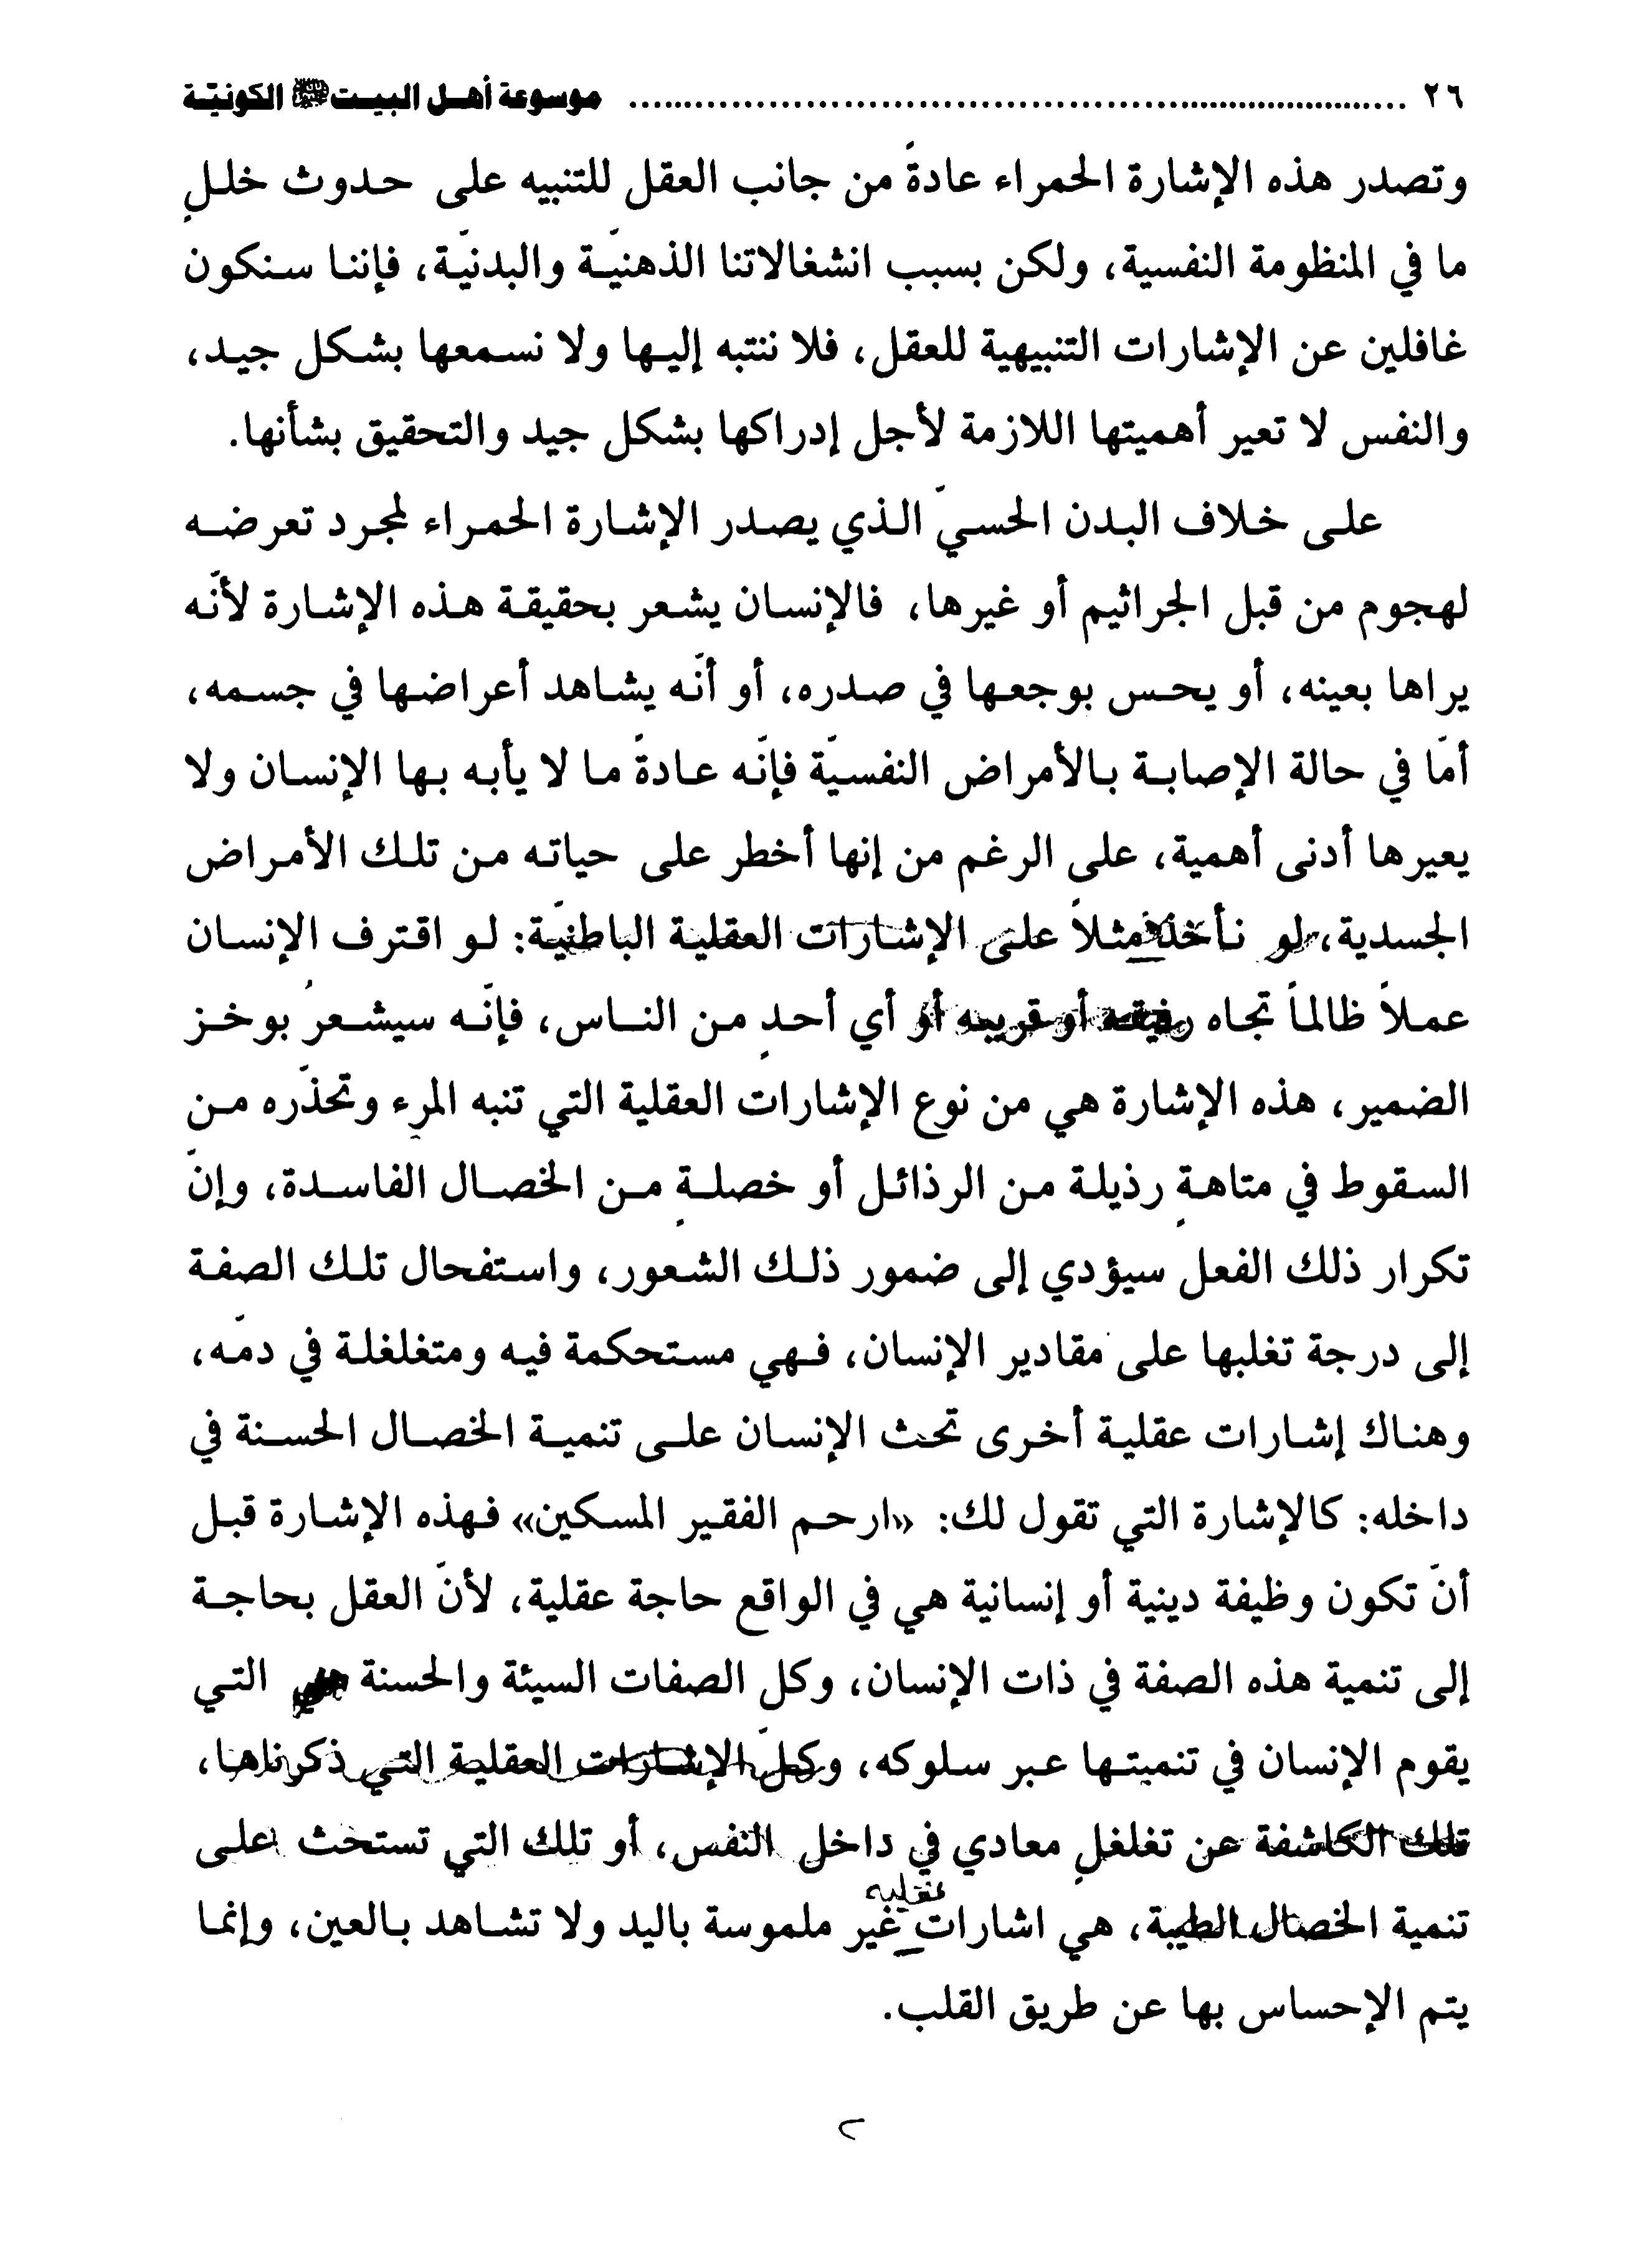 ٢٦ ........................................................ موسوعة أهل البيت الكونيّة
وتصدر هذه الإشارة الحمراء عادةً من جانب العقل للتنبيه على حدوث خللٍ
ما في المنظومة النفسية، ولكن بسبب انشغالاتنا الذهنيّة والبدنيّة، فإننا سنكون
غافلين عن الإشارات التنبيهية للعقل، فلا ننتبه إليها ولا نسمعها بشكل جيد،
والنفس لا تعير أهميتها اللازمة لأجل إدراكها بشكل جيد والتحقيق بشأنها.
على خلاف البدن الحسيّ الذي يصدر الإشارة الحمراء لمجرد تعرضه
لهجوم من قبل الجراثيم أو غيرها، فالإنسان يشعر بحقيقة هذه الإشارة لأنّه
يراها بعينه، أو يحس بوجعها في صدره، أو أنّه يشاهد أعراضها في جسمه،
أمّا في حالة الإصابة بالأمراض النفسيّة فإنّه عادةً ما لا يأبه بها الإنسان ولا
يعيرها أدنى أهمية، على الرغم من إنها أخطر على حياته من تلك الأمراض
الجسدية، لو نأخذ مثلاً على الإشارات العقلية الباطنيّة: لو اقترف الإنسان
عملاً ظالماً تجاه رفيقه أو قريبه أو أي أحدٍ من الناس، فإنّه سيشعرُ بوخز
الضمير، هذه الإشارة هي من نوع الإشارات العقلية التي تنبه المرء وتحذّره من
السقوط في متاهةِ رذيلة من الرذائل أو خصلةٍ من الخصال الفاسدة، وإنّ
تكرار ذلك الفعل سيؤدي إلى ضمور ذلك الشعور، واستفحال تلك الصفة
إلى درجة تغلبها على مقادير الإنسان، فهي مستحكمة فيه ومتغلغلة في دمّه،
وهناك إشارات عقلية أخرى تحث الإنسان على تنمية الخصال الحسنة في
داخله: كالإشارة التي تقول لك: «ارحم الفقير المسكين» فهذه الإشارة قبل
أنّ تكون وظيفة دينية أو إنسانية هي في الواقع حاجة عقلية، لأنّ العقل بحاجة
إلى تنمية هذه الصفة في ذات الإنسان، وكل الصفات السيئة والحسنة هي التي
يقوم الإنسان في تنميتها عبر سلوكه، وكلّ الإشارات العقلية التي ذكرناها،
تلك الكاشفة عن تغلغلٍ معادي في داخل النفس، أو تلك التي تستحث على
عقليه
تنمية الخصال الطيبة، هي اشارات غير ملموسة باليد ولا تشاهد بالعين، وإنما
يتم الإحساس بها عن طريق القلب.
٢